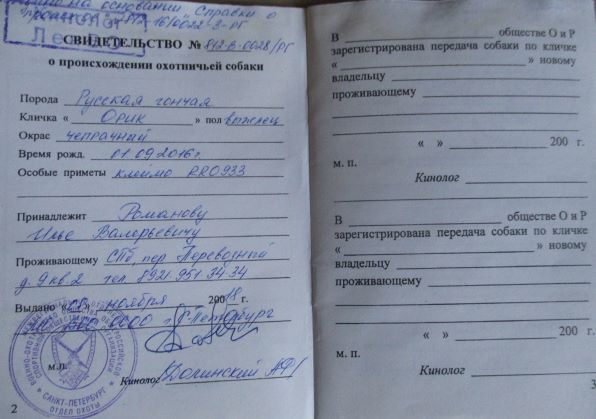 на основании „Справки о
16/0022-В-РГ
СВИДЕТЕЛЬСТВО № 842-В-0028/РГ
о происхождении охотничьей собаки
Порода Русская гончая
Кличка « Орик » пол выжлец
Окрас чепрачный
Время рожд. 01.09.2016г.
Особые приметы клеймо PRO933
Принадлежит Романову
Илье Валерьевичу
Проживающему СПб, пер. Перевозный
д. 9 кв. 2 тел. 8921.951.34.34
Выдано ноября 2018 г.
ООО С-Петербург
м.п.
Кинолог Долинский АФ
САНКТ-ПЕТЕРБУРГ
ОТДЕЛ ОХОТЫ
2
В обществе О и Р
зарегистрирована передача собаки по кличке
« » новому
владельцу
проживающему
« » 200 г.
м. п.
Кинолог
В обществе О и Р
зарегистрирована передача собаки по кличке
« » новому
владельцу
проживающему
« » 200 г.
м. п.
Кинолог
3